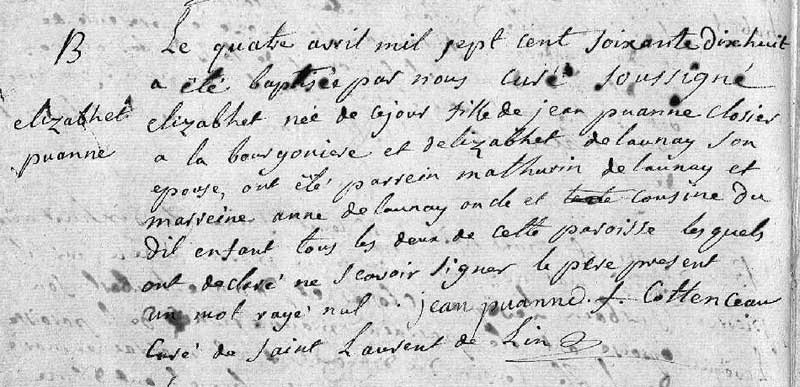 B
elizabhet
puanne
Le quatre avril mil sept cent soixante dixhuit
a été baptisée par nous curé soussigné
elizabhet née de cejour fille de jean puanne closier
a la bourgoniere et delizabhet delaunay son
epouse, ont été parrein mathurin delaunay et
marreine anne delaunay oncle et tente cousine du
dit enfant tous les deux de cette paroisse lesquels
ont declaré ne scavoir signer le père present
un mot rayé nul . jean puanne . f. Cottenceau
Curé de Saint Laurent de Lin